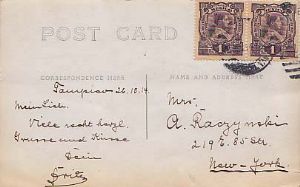 POST CARD
CORRESPONDENCE HERE
NAME AND ADDRESS HERE
1
1
Tampico 26.10.14.
Mein Lieb.
Viele recht herzl.
Grusse und Küsse
Dein
Fritz
Mrs.
A. Raczynski
219 E. 85 Str.
New-York.